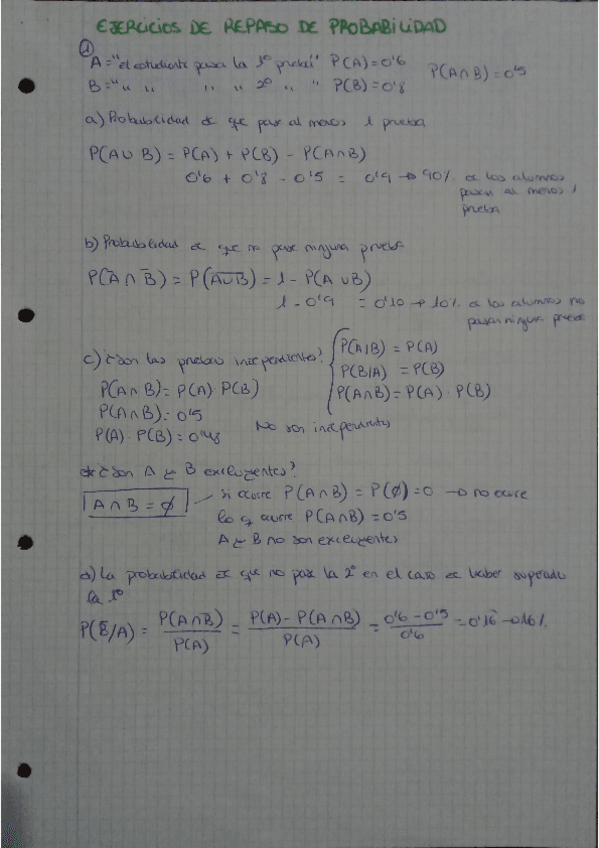 EJERCICIOS DE REPASO DE PROBABILIDAD
① A = "el estudiante pasa la 1º prueba" P(A) = 0'6 P(A∩B) = 0'5
B = " " " " " 2º " " P(B) = 0'8
a) Probabilidad de que pase al menos 1 prueba
P(A∪B) = P(A) + P(B) - P(A∩B)
0'6 + 0'8 - 0'5 = 0'9 → 90% de los alumnos
pasan al menos 1
prueba
b) Probabilidad de que no pase ninguna prueba
P(A̅ ∩ B̅) = P(A̅∪̅B̅) = 1 - P(A∪B)
1 - 0'9 = 0'10 → 10% de los alumnos no
pasan ninguna prueba
c) ¿Son las pruebas independientes?
P(A|B) = P(A)
P(B/A) = P(B)
P(A∩B) = P(A) · P(B)
P(A∩B) = P(A) · P(B)
P(A∩B) = 0'5
P(A) · P(B) = 0'48 No son independientes
¿Son A y B excluyentes?
A∩B = ∅ si ocurre P(A∩B) = P(∅) = 0 → no ocurre
lo q ocurre P(A∩B) = 0'5
A y B no son excluyentes
d) La probabilidad de que no pase la 2º en el caso de haber superado
la 1º
P(B̅/A) = P(A∩B̅) / P(A) = P(A) - P(A∩B) / P(A) = 0'6 - 0'5 / 0'6 = 0'16 → 16%